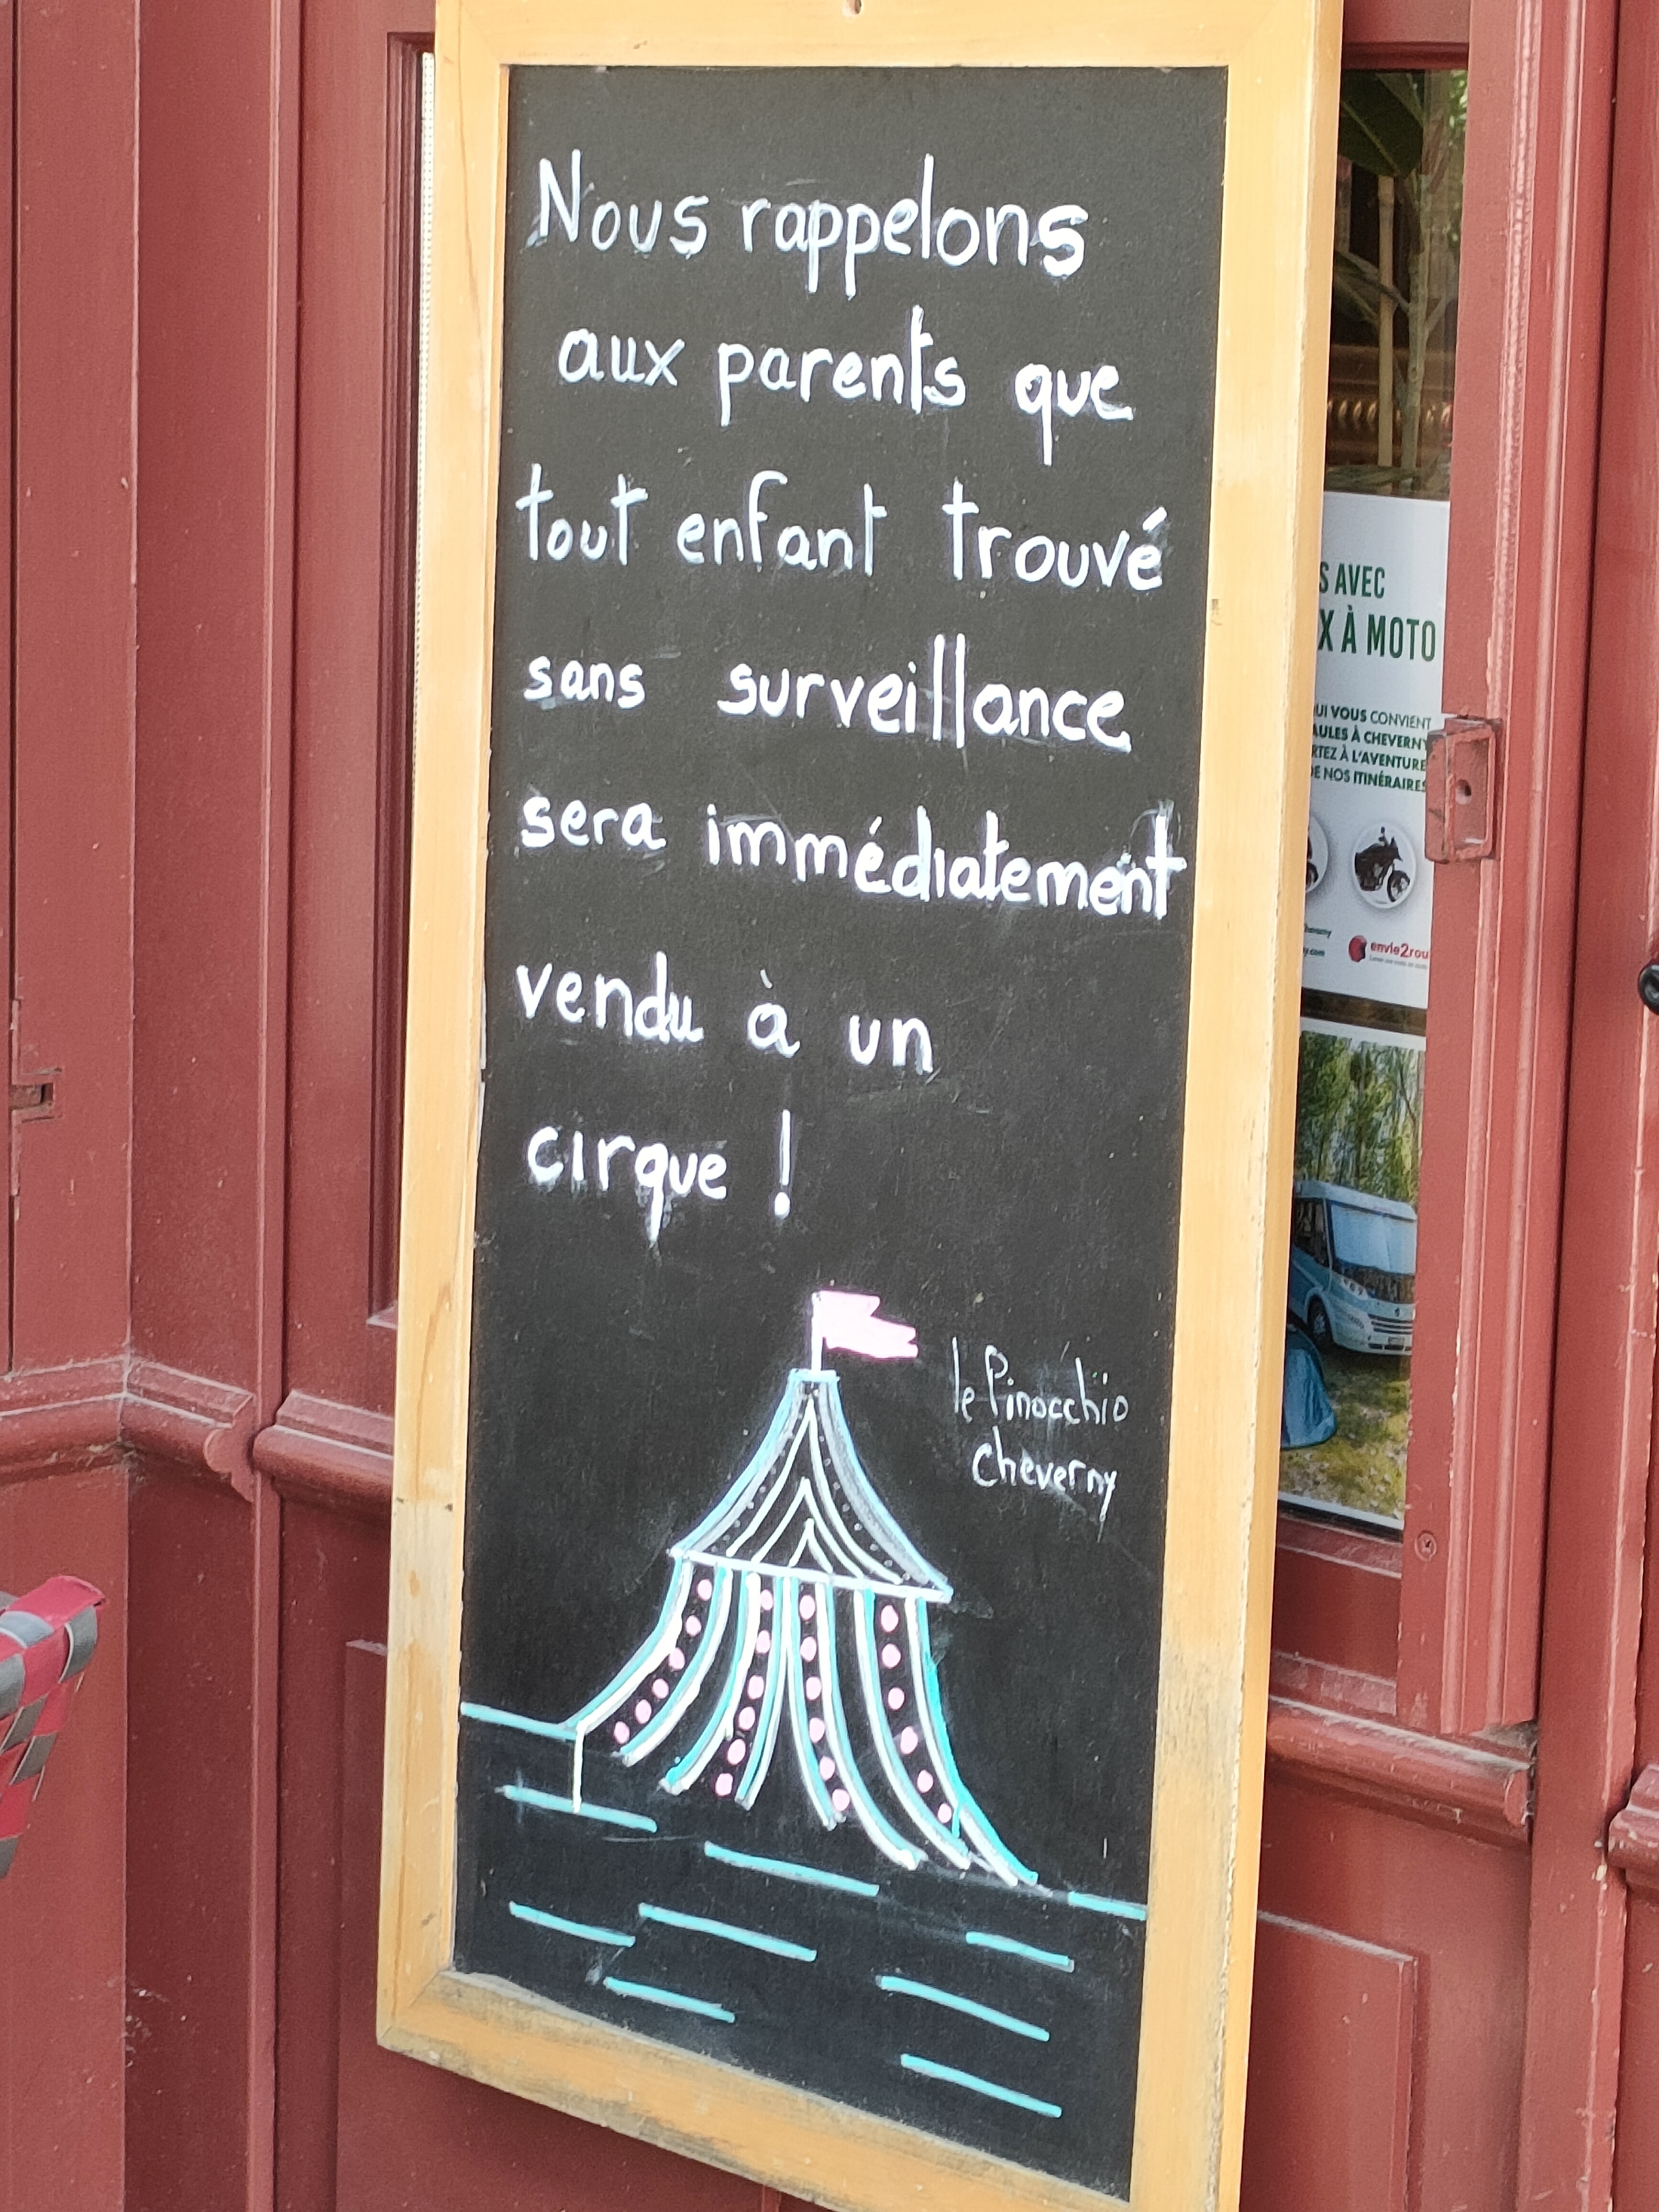 Nous rappelons
aux parents que
tout enfant trouvé
sans surveillance
sera immédiatement
vendu à un
cirque !
le Pinocchio
Cheverny
S AVEC
X À MOTO
UI VOUS CONVIENT
AULES À CHEVERNY
RTEZ À L'AVENTURE
DE NOS ITINÉRAIRES
envie2rou